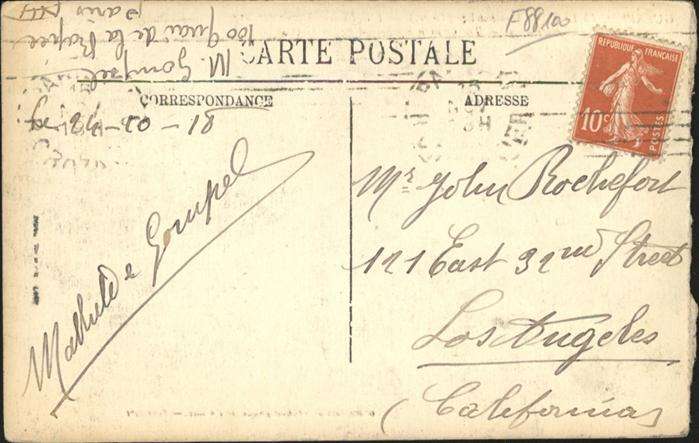 M. Gompel
100 Quai de la Rapée
Paris XII
F88100
CARTE POSTALE
CORRESPONDANCE
ADRESSE
REPUBLIQUE FRANÇAISE
10c
POSTES
Mathilde Gompel
Mr John Rochefort
121 East 32nd Street
Los Angeles
(California)